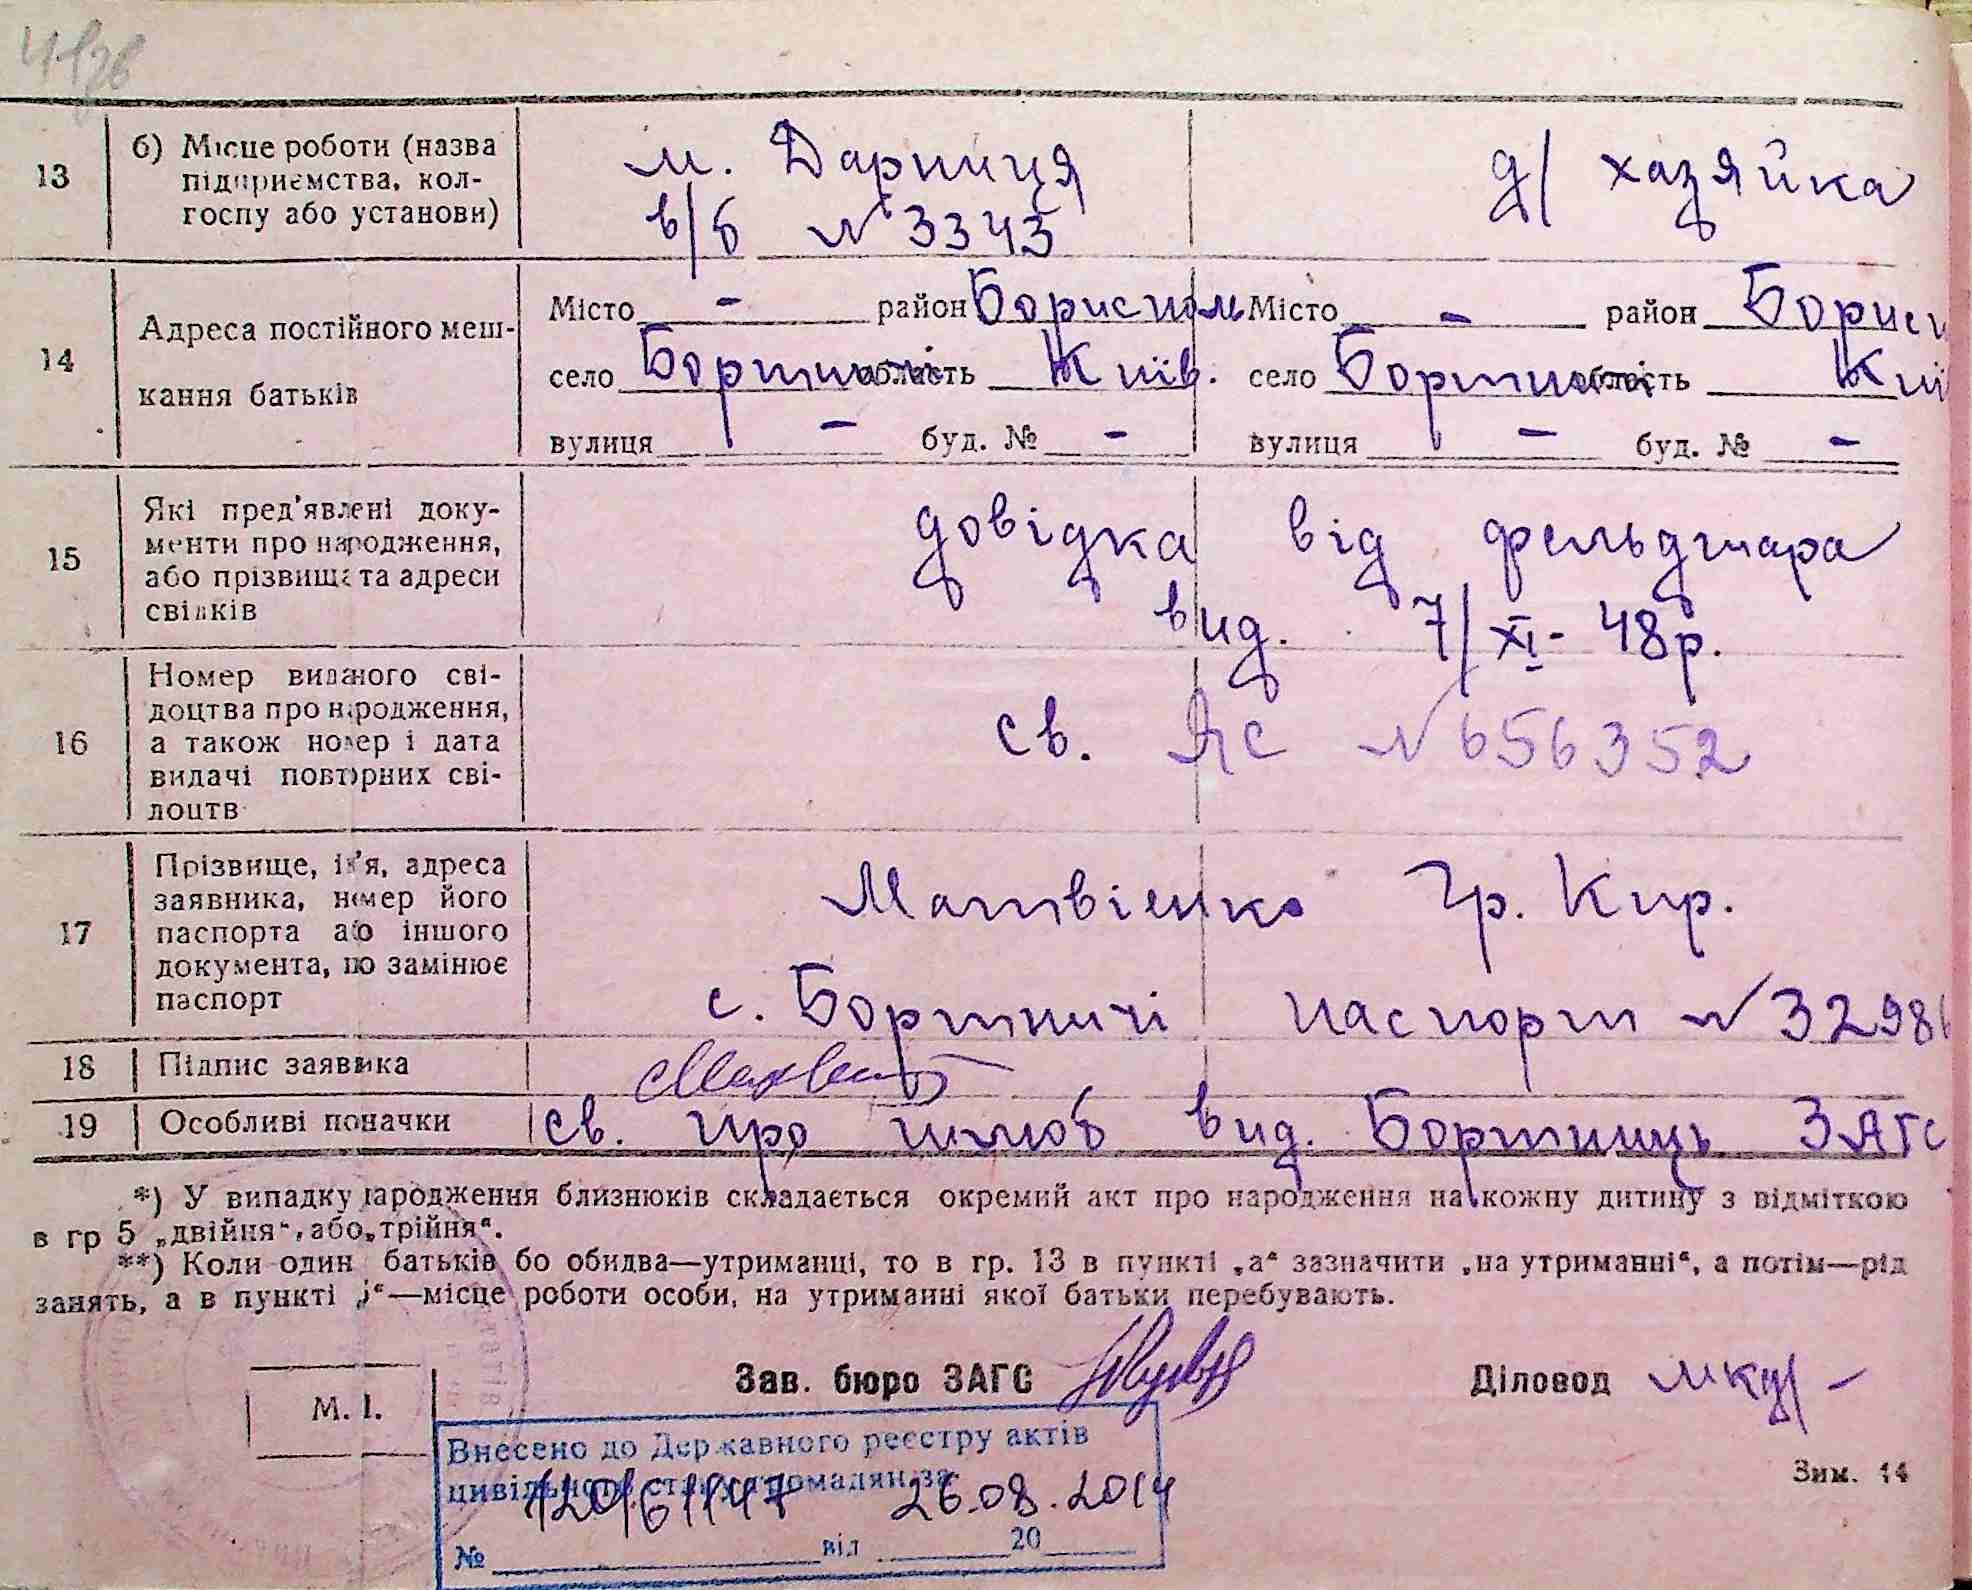 13
б) Місце роботи (назва
підприємства, кол-
госпу або установи)
м. Дарниця
в/б № 3343
д/ хазяйка
14
Адреса постійного меш-
кання батьків
Місто - район Бориспіль
село Бортничі область Київ.
вулиця - буд. № -
Місто - район Борисп
село Бортничі область Киї
вулиця - буд. № -
15
Які пред'явлені доку-
менти про народження,
або прізвища та адреси
свідків
довідка від фельдшара
вид. 7/XI - 48р.
16
Номер виданого сві-
доцтва про народження,
а також номер і дата
видачі повторних сві-
доцтв
св. ЯС № 656352
17
Прізвище, ім'я, адреса
заявника, номер його
паспорта або іншого
документа, що замінює
паспорт
Матвієнко Гр. Кир.
с. Бортничі паспорт № 3298
18
Підпис заявника
19
Особливі позначки
св. про шлюб вид. Бортниць ЗАГС
*) У випадку народження близнюків складається окремий акт про народження на кожну дитину з відміткою
в гр 5 „двійня“, або „трійня“.
**) Коли один батьків бо обидва—утриманці, то в гр. 13 в пункті „а“ зазначити „на утриманні“, а потім—рід
занять, а в пункті „б“—місце роботи особи, на утриманні якої батьки перебувають.
Зав. бюро ЗАГС
Діловод
М. І.
Внесено до Державного реєстру актів
цивільного стану громадян за
26.08.2014
№ від 20
Зим. 14